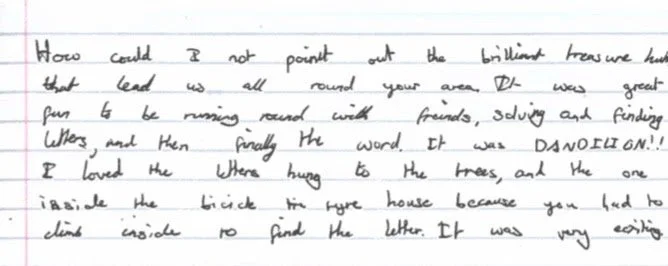 How could I not pointt out the brilliant treasure hun
that lead us all round your area. It was great
fun to be running round with friends, solving and finding
letters, and then finally the word. It was DANDILION!!
I loved the letters hung to the trees, and the one
inside the bicicle tyre house because you had to
climb inside to find the letter. It was very exiting.